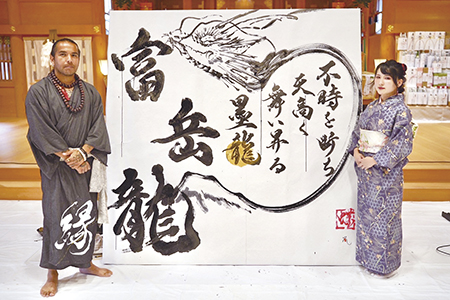 不時を
天高く
舞い昇る
墨龍
富岳龍
縁